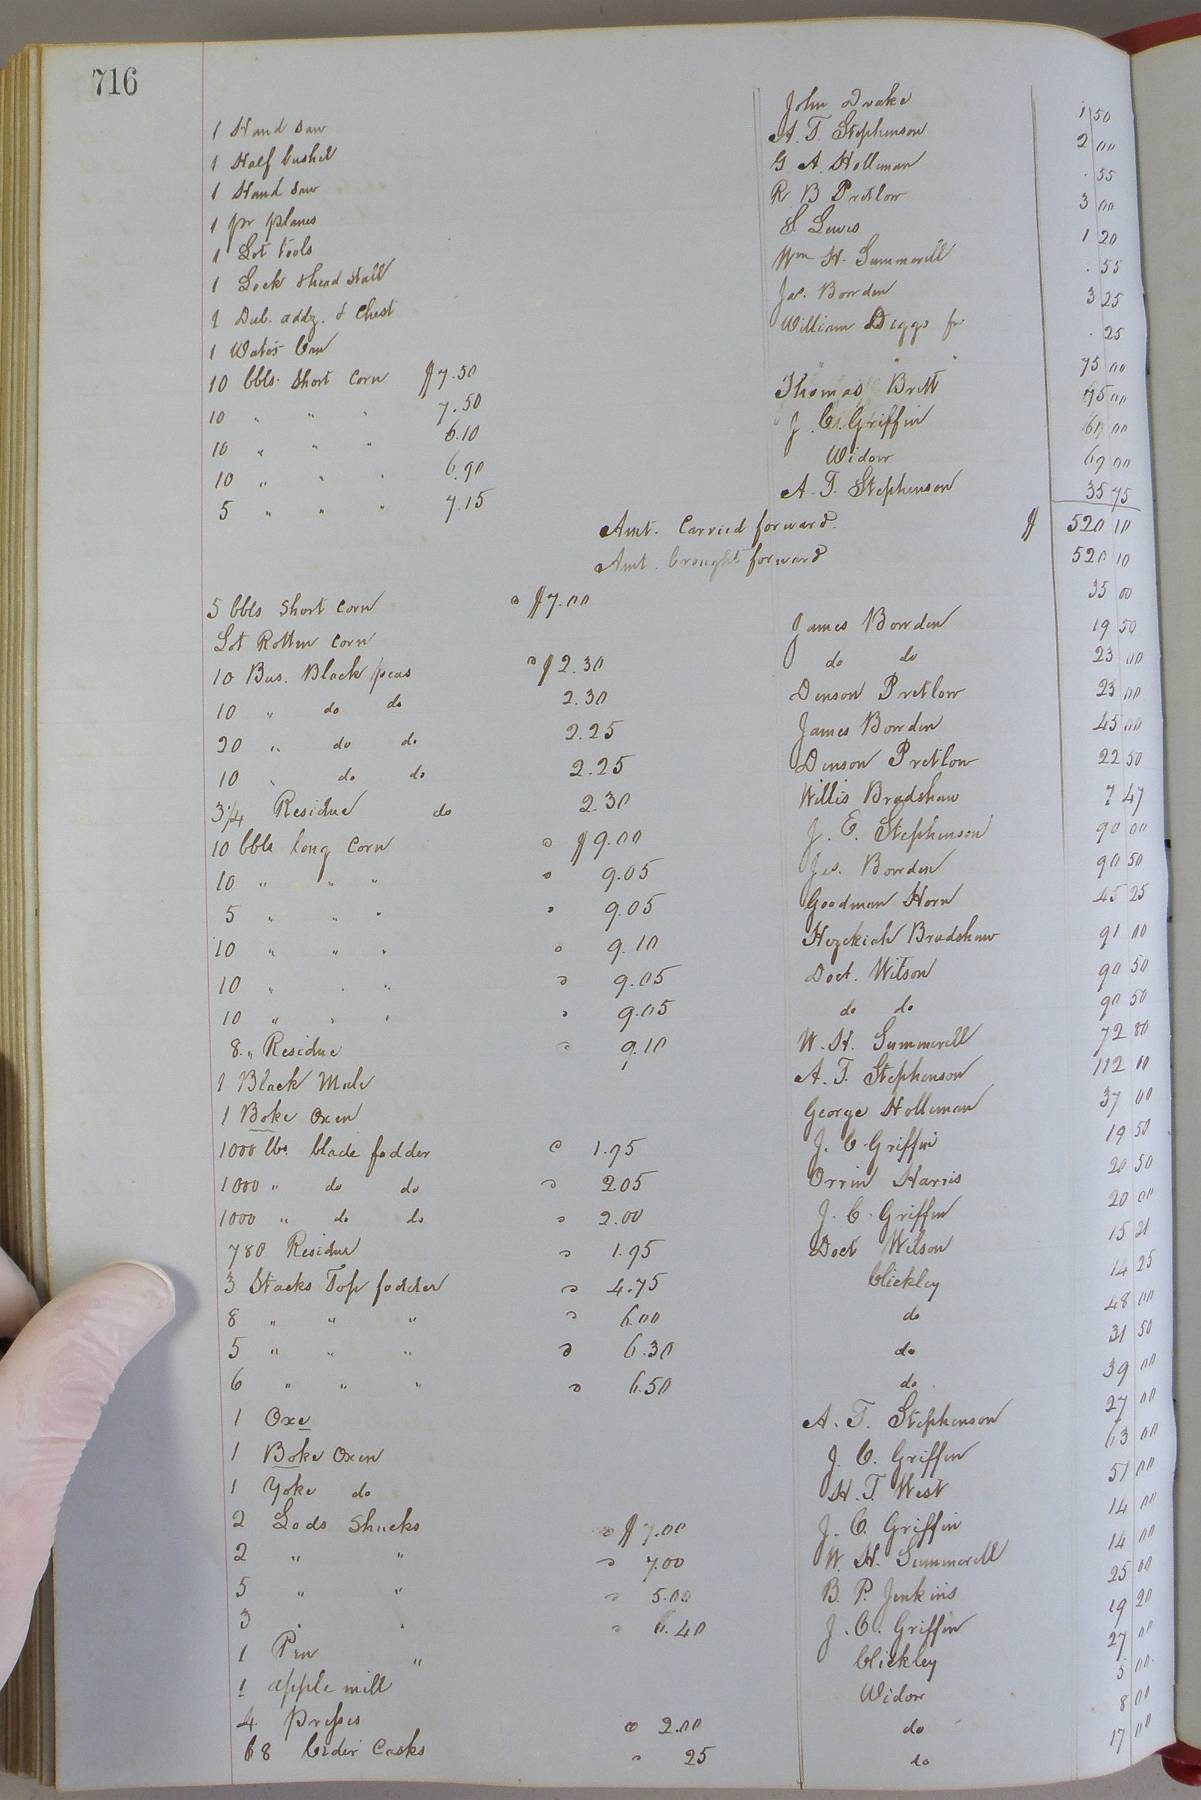 716
1 Hand saw John Drake 1 50
1 Half bushel A. T. Stephenson 2 00
1 Hand saw G. A. Holleman . 55
1 pr planes R. B Pretlow 3 00
1 Lot tools S. Lewis 1 20
1 Lock & head Stall Wm H. Summerell . 55
1 Dub. addz. & Chest Jas. Bowden 3 25
1 Water Can William Diggs . 25
10 bbls. short Corn $7.50 " " " 75 00
10 " " " 7.50 Thomas Britt 75 00
10 " " " 6.10 J. C. Griffin 00
10 " " " 6.90 Widow 69 00
5 " " " 7.15 A. T. Stephenson 35 75
Amt. Carried forward. $ 520 10
Amt. brought forward 520 10
5 bbls short corn @ $7.00 35 00
Lot Rotten corn James Bowden 19 50
10 Bus. Black peas @ $2.30 do do 23 00
10 " do do 2.30 Denson Pretlow 23 00
20 " do do 2.25 James Bowden 45 00
10 " do do 2.25 Denson Pretlow 22 50
3 1/4 Residue do 2.30 Willis Bradshaw 7 47
10 bbls long Corn @ $9.00 J. E. Stephenson 90 00
10 " " " @ 9.05 Jas. Bowden 90 50
5 " " " " 9.05 Goodman Horn 45 25
10 " " " @ 9.10 Hezekiah Bradshaw 91 00
10 " " " @ 9.05 Doct. Wilson 90 50
10 " " " " 9.05 do do 90 50
8 " Residue @ 9.10 W. H. Summerell 72 80
1 Black Mule A. T. Stephenson 112 00
1 Boke Oxen George Holleman 37 00
1000 lbs. blade fodder @ 1.95 J. C. Griffin 19 50
1000 " do do @ 2.05 Orrin Harris 20 50
1000 " do do @ 2.00 J. C. Griffin 20 00
780 Residue @ 1.95 Doct Wilson 15 21
3 Stacks Top fodder @ 4.75 Blickley 14 25
8 " " " @ 6.00 do 48 00
5 " " " @ 6.30 do 31 50
6 " " " @ 6.50 do 39 00
1 Oxe A. T. Stephenson 27 00
1 Boke Oxen J. C. Griffin 63 00
1 Yoke do H. T. West 51 00
2 Lods Shucks @ $7.00 J. C. Griffin 14 00
2 " " @ 7.00 W. H. Summerell 14 00
5 " " @ 5.00 B. P. Jenkins 25 00
3 " " @ 6.40 J. C. Griffin 19 20
1 Pen " Blickley 27 00
1 apple mill Widow 5 00
4 presses @ 2.00 do 8 00
68 Cider Casks @ 25 do 17 00